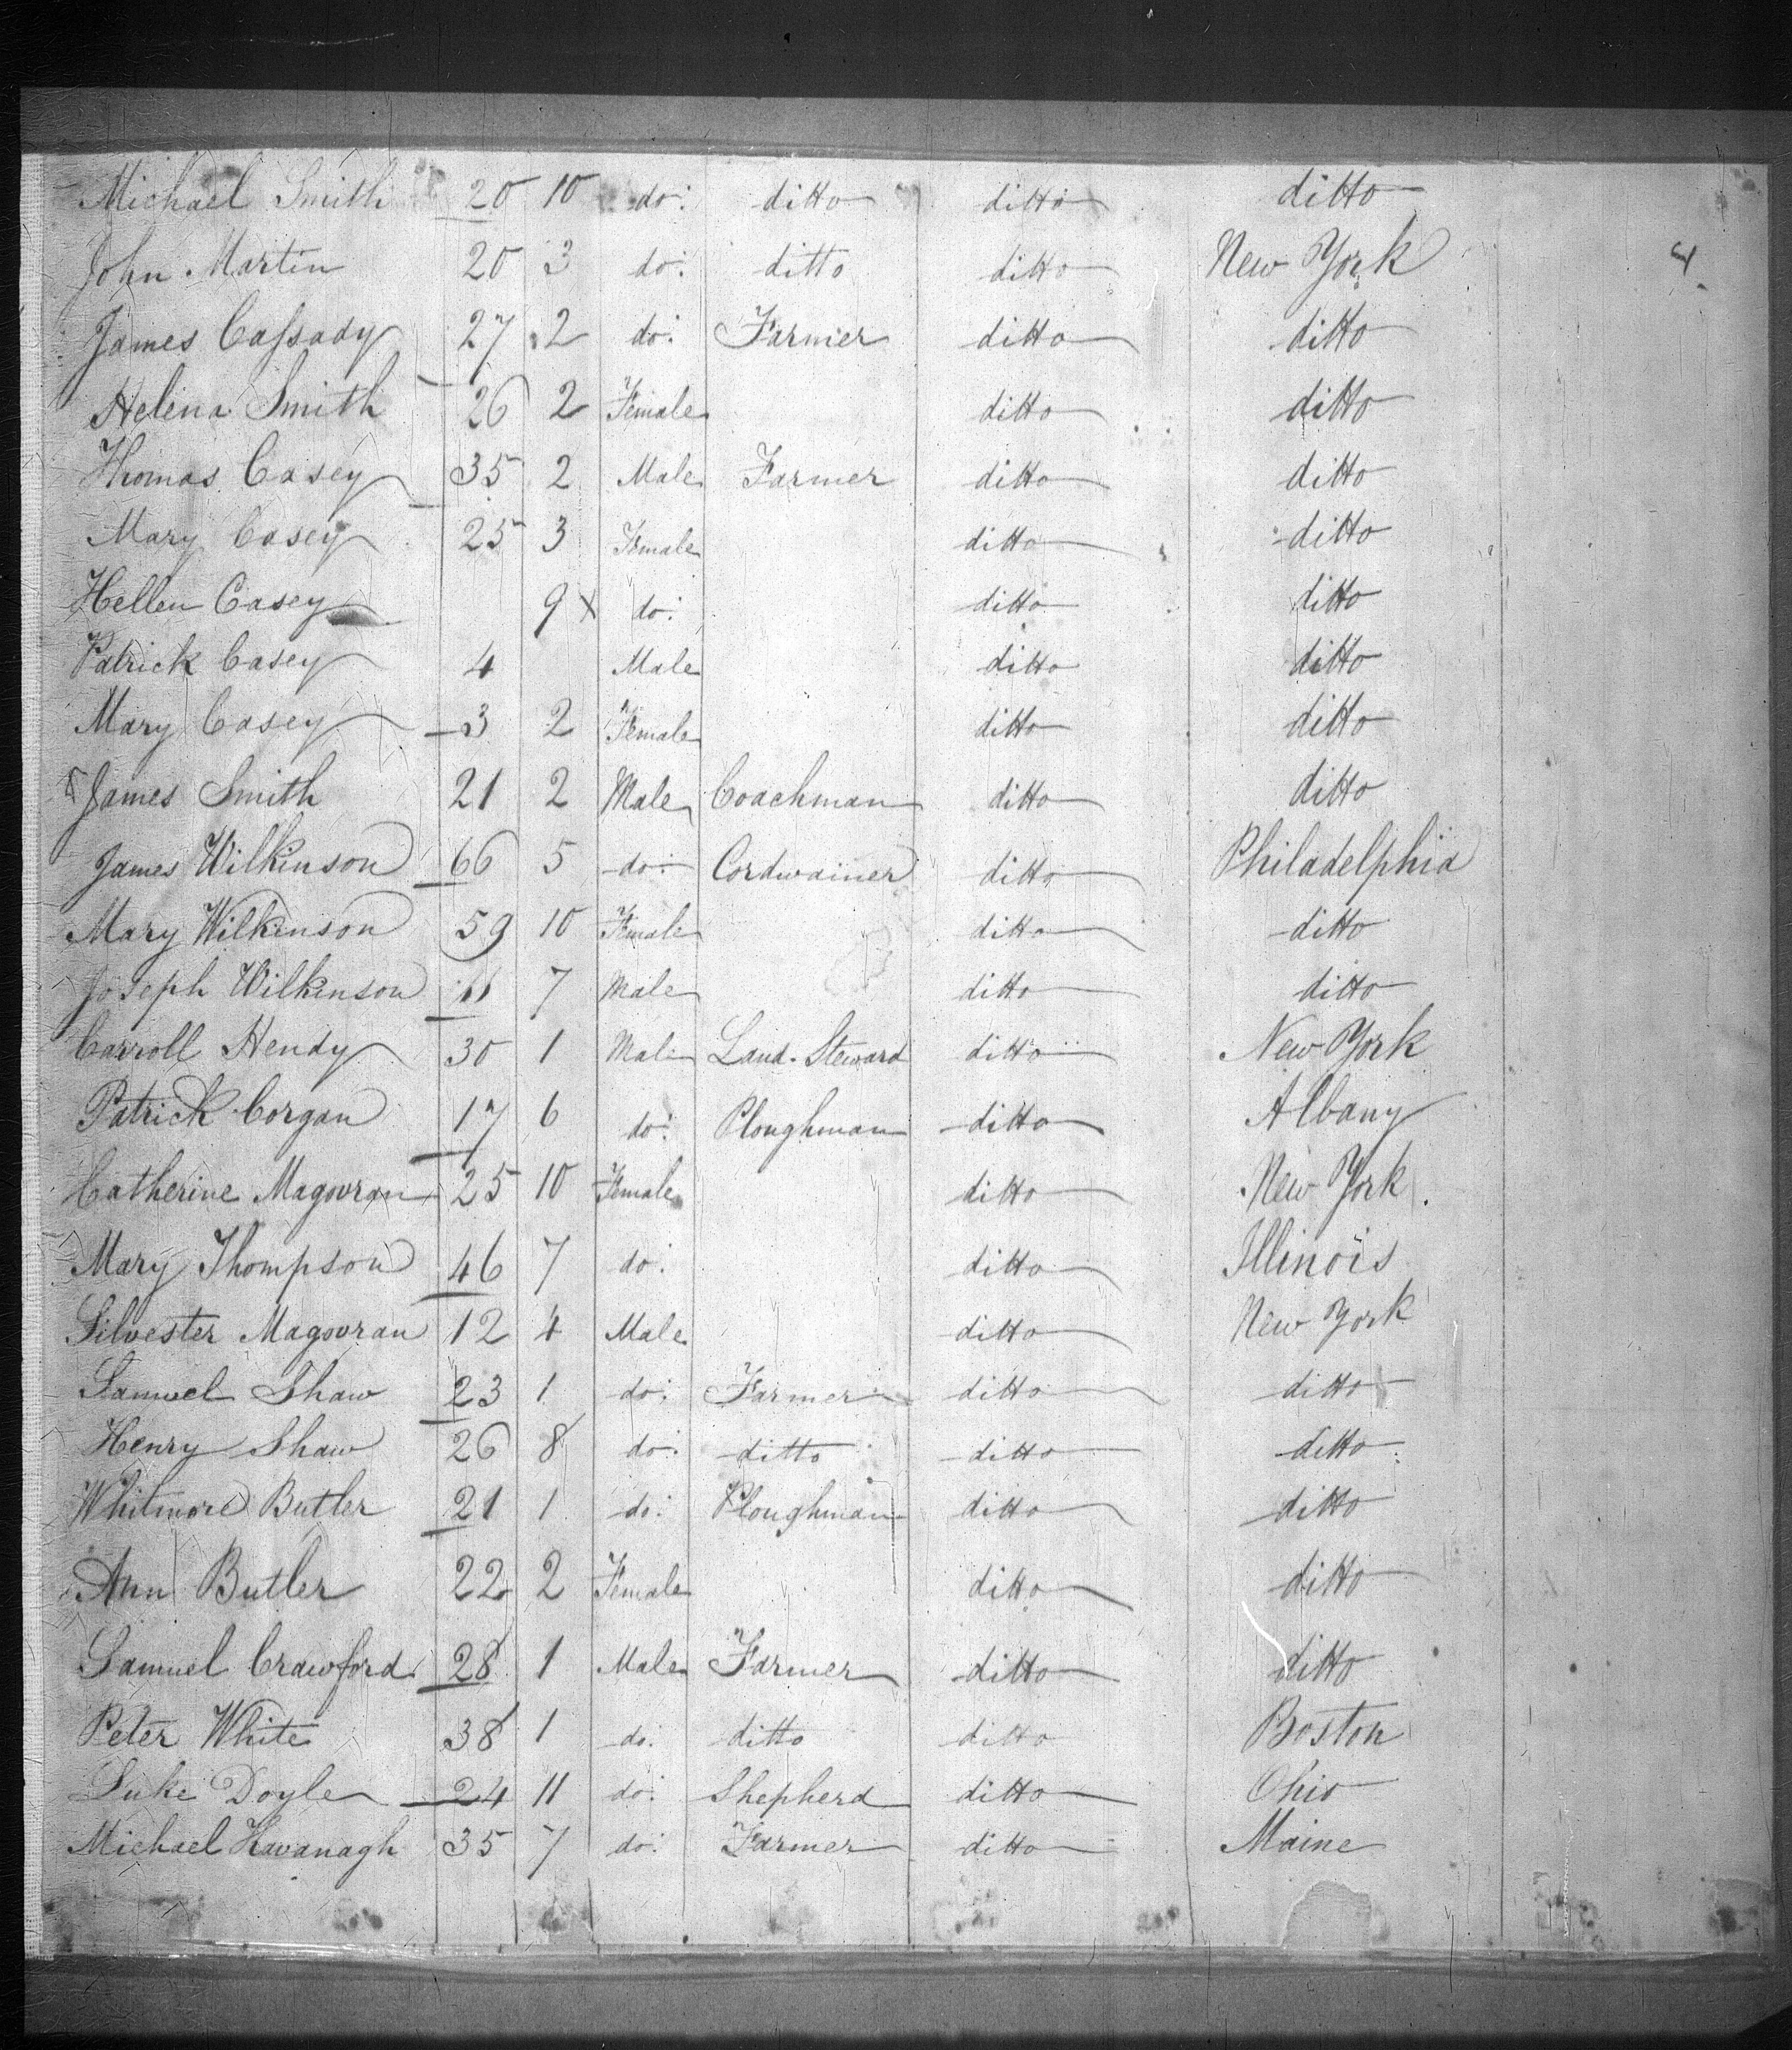 Michael Smith 20 10 do: ditto ditto ditto
John Martin 20 3 do: ditto ditto New York 4
James Cassady 27 2 do: Farmer ditto ditto
Helena Smith 26 2 Female ditto ditto
Thomas Casey 35 2 Male Farmer ditto ditto
Mary Casey 25 3 Female ditto ditto
Hellen Casey 9 x do: ditto ditto
Patrick Casey 4 Male ditto ditto
Mary Casey 3 2 Female ditto ditto
James Smith 21 2 Male Coachman ditto ditto
James Wilkinson 66 5 do: Cordwainer ditto Philadelphia
Mary Wilkinson 59 10 Female ditto ditto
Joseph Wilkinson 7 Male ditto ditto
Carroll Hendy 30 1 Male Land Steward ditto New York
Patrick Corgan 17 6 do: Ploughman ditto Albany
Catherine Magovran 25 10 Female ditto New York.
Mary Thompson 46 7 do: ditto Illinois
Silvester Magovran 12 4 Male ditto New York
Samuel Shaw 23 1 do: Farmer ditto ditto
Henry Shaw 26 8 do: ditto ditto ditto
Whitmore Butler 21 1 do: Ploughman ditto ditto
Ann Butler 22 2 Female ditto ditto
Samuel Crawford 28 1 Male Farmer ditto ditto
Peter White 38 1 do: ditto ditto Boston
Luke Doyle 24 11 do: Shepherd ditto Ohio
Michael Kavanagh 35 7 do: Farmer ditto Maine